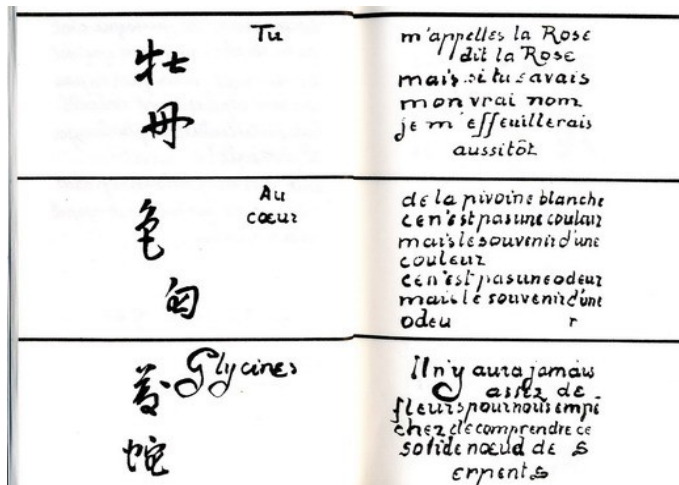 Tu
牡
丹
m'appelles la Rose
dit la Rose
mais si tu savais
mon vrai nom
je m'effeuillerais
aussitôt
Au
cœur
色
匂
de la pivoine blanche
ce n'est pas une couleur
mais le souvenir d'une
couleur
ce n'est pas une odeur
mais le souvenir d'une
odeu r
Glycines
蛇
Il n'y aura jamais
assez de
fleurs pour nous empê
cher de comprendre ce
solide nœud de s
erpents